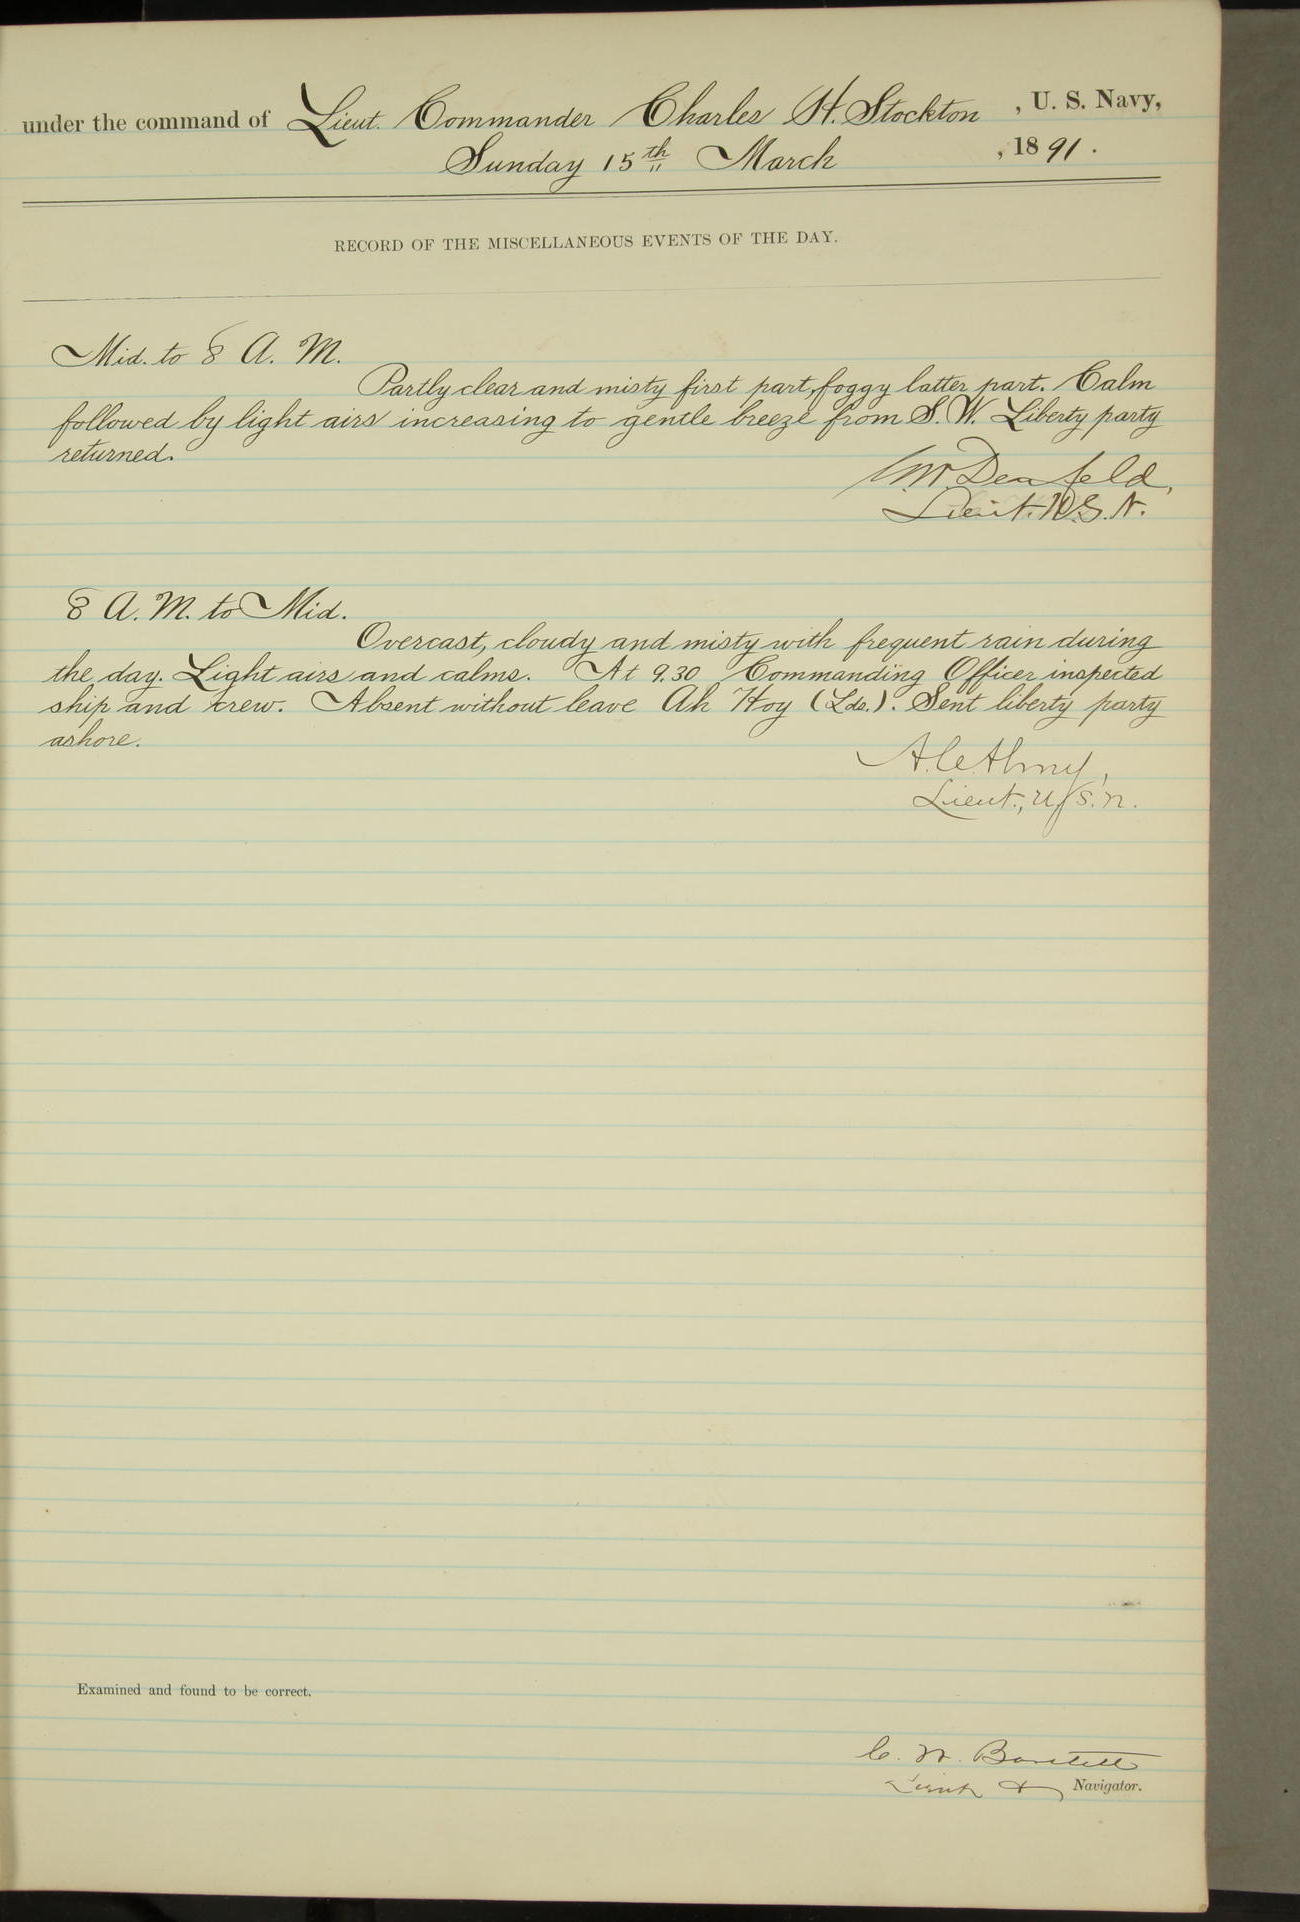 under the command of Lieut. Commander Charles H. Stockton, U. S. Navy,
Sunday 15th March, 1891.
RECORD OF THE MISCELLANEOUS EVENTS OF THE DAY.
Mid. to 8 A. M.
Partly clear and misty first part, foggy latter part. Calm
followed by light airs increasing to gentle breeze from S. W. Liberty party
returned.
Denfeld,
Lieut. U.S.N.
8 A. M. to Mid.
Overcast, cloudy and misty with frequent rain during
the day. Light airs and calms. At 9.30 Commanding Officer inspected
ship and crew. Absent without leave Ah Hoy (Lds.). Sent liberty party
ashore.
A. C. Almy,
Lieut., U.S.N.
Examined and found to be correct.
C. W. Bartlett
Lieut & Navigator.